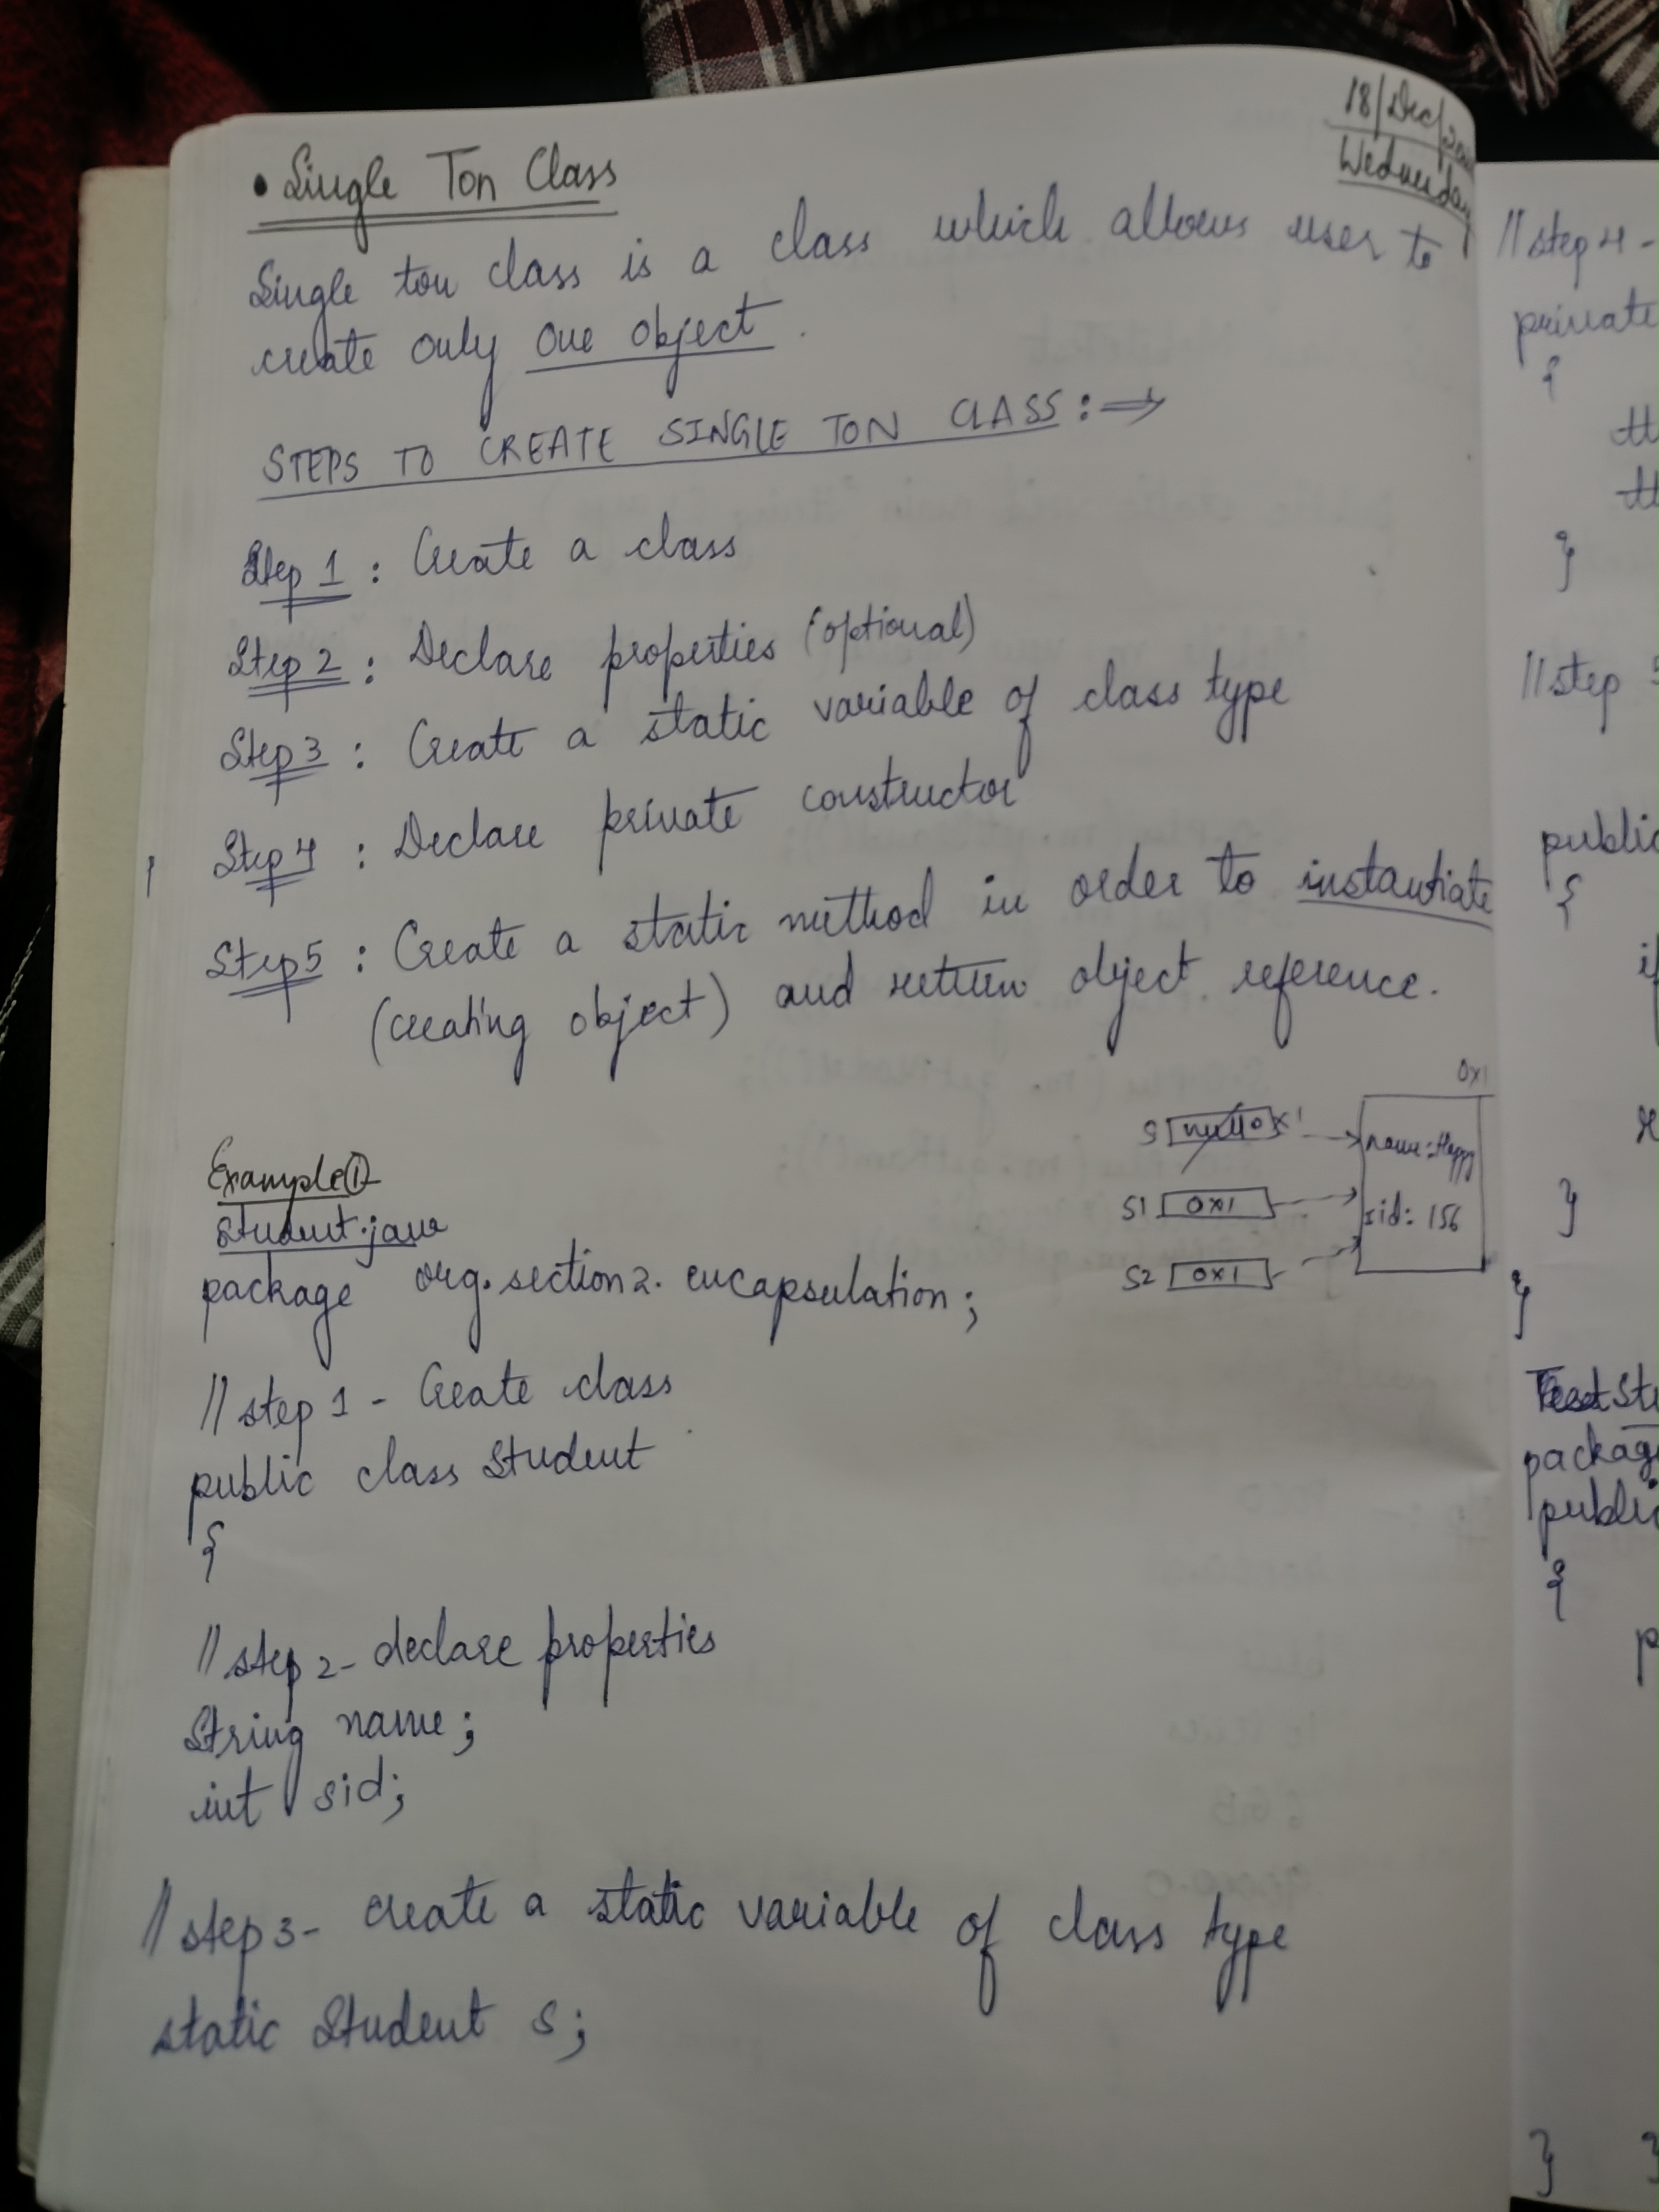 18/Dec/20
Wednesday
• Single Ton Class
Single ton class is a class which allows user to
create only one object.
STEPS TO CREATE SINGLE TON CLASS :⇒
Step 1 : Create a class
Step 2 : Declare properties (optional)
Step 3 : Create a static variable of class type
Step 4 : Declare private constructor
Step 5 : Create a static method in order to instantiate
(creating object) and return object reference.
0x1
S null 0x1
name: Happy
S1 0x1
sid: 156
S2 0x1
Example ①
Student.java
package org.section2.encapsulation;
// step 1 - Create class
public class Student
{
// step 2 - declare properties
String name;
int sid;
// step 3 - create a static variable of class type
static Student s;
// step 4 -
private
{
}
// step 5
public
{
if
}
}
Test Stu
package
public
{
p
}
}